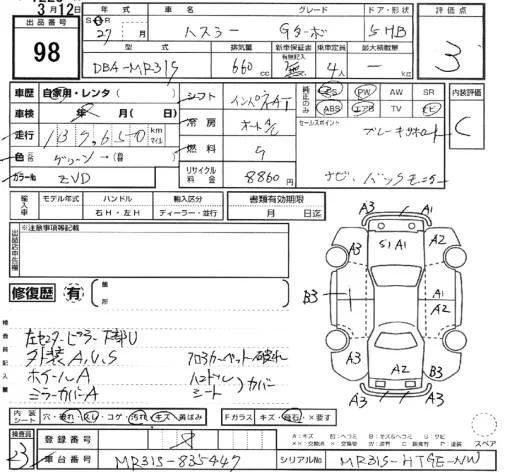 3月12日
年式 車名 グレード ドア・形状 評価点
出品番号 98
S H R 27 年 月 ハスラー Gターボ 5HB 3
型式 排気量 新車保証書 乗車定員 最大積載量
有無記入
DBA-MR31S 660 cc 無 4人 — kg
車歴 自家用・レンタ( )
車検 年 月( 日)
走行 137,650 km マイル
色 グリーン→
カラーNo. ZVD
シフト インパネAT
冷房 オートA/C
燃料 ガ
リサイクル料金 8860円
純正のみ PS PW AW SR
ABS エアB TV ナビ
内装評価 C
セールスポイント
ブレーキサポート
ナビ、バックモニター
輸入車 モデル年式 ハンドル 輸入区分 書類有効期限
右H・左H ディーラー・並行 月 日迄
出品店申告欄 ※注意事項等記載
修復歴 有 箇所
A3 A1
A3 S1 A1 A2
B3 A1
A2
A3 A2 B3
A3 A3
検査員記入欄
左センターピラー下部U
外装A,U,S フロアカーペット破れ
ホイールA ハンドル
シート )カバー
ミラーカバーA
内装シート 穴・破れ・スレ・コゲ・汚れ・キズ・黄ばみ Fガラス キズ・飛石・×要す
スペア
検査員 23
登録番号 8
車台番号 MR31S-835447 シリアルNo. MR31S-HTGE-NW